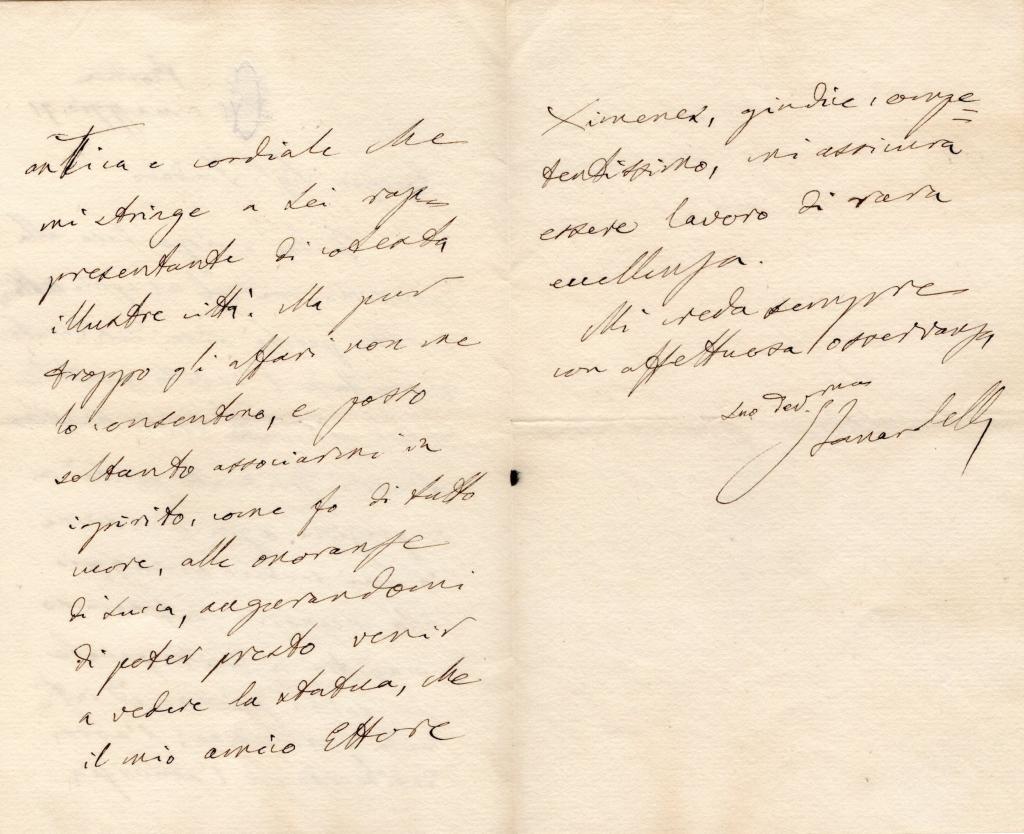 antica e cordiale che
mi stringe a Lei rap=
presentante di cotesta
illustre città. Ma pur
troppo gli affari non me
lo consentono, e posso
soltanto associarmi in
ispirito, come fo di tutto
cuore, alle onoranze
di Lucca, augurandomi
di poter presto venir
a vedere la statua, che
il mio amico Ettore
Ximenes, giudice compe=
tentissimo, mi assicura
essere lavoro di rara
eccellenza.
Mi creda sempre
con affettuosa osservanza
suo dev.mo
GZanardelli